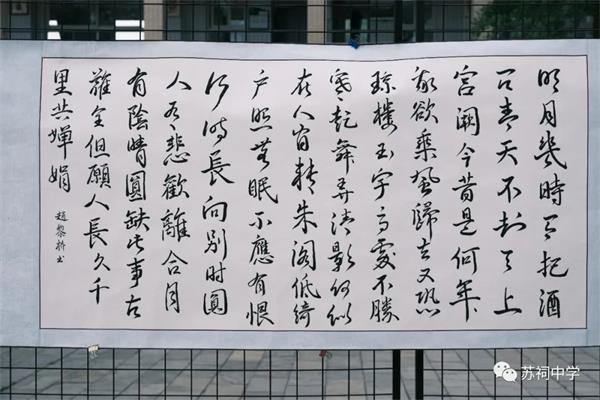 明月幾時有把酒
问青天不知天上
宮阙今昔是何年
我欲乘風歸去又恐
琼樓玉宇高處不勝
寒起舞弄清影何似
在人间转朱阁低绮
户照无眠不應有恨
何时長向别时圆
人有悲歡離合月
有陰晴圓缺此事古
難全但願人長久千
里共嬋娟
趙黎书
苏祠中学